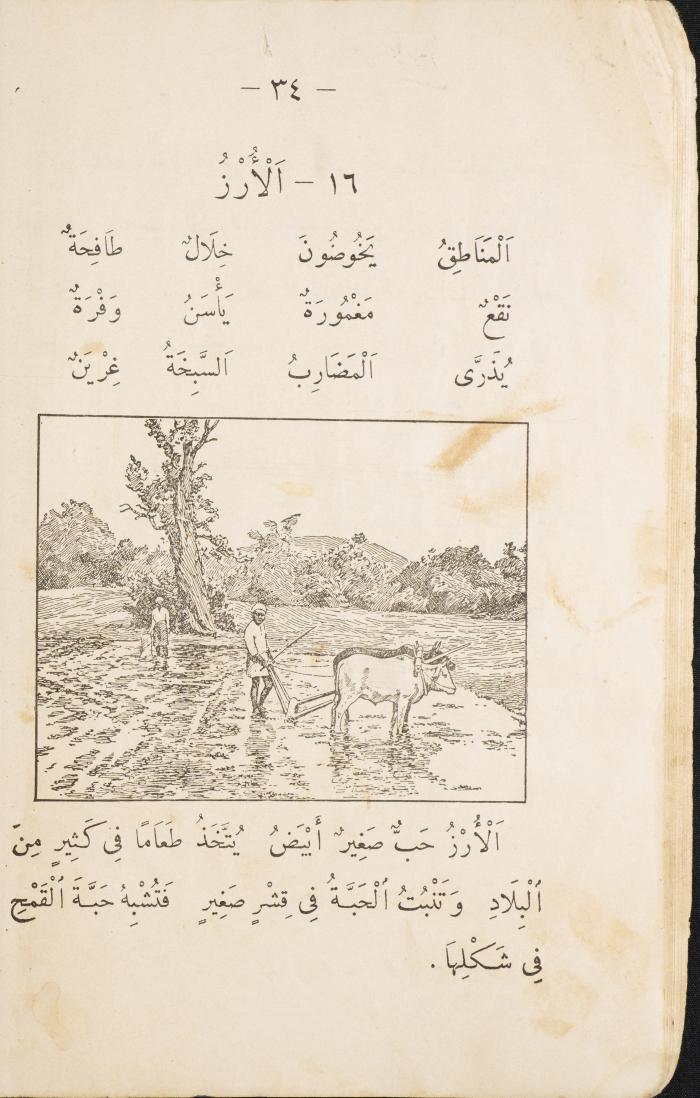 — ٣٤ —
١٦ – اَلْأُرْزُ
اَلْمَنَاطِقُ يَخُوضُونَ خِلَالٌ طَافِحَةٌ
نَقْعٌ مَغْمُورَةٌ يَأْسَنُ وَفْرَةٌ
يُذَرَّى اَلْمَضَارِبُ اَلسَّبِخَةُ غِرْيَنٌ
اَلْأُرْزُ حَبٌّ صَغِيرٌ أَبْيَضُ يُتَّخَذُ طَعَامًا فِي كَثِيرٍ مِنَ
ٱلْبِلَادِ وَتَنْبُتُ ٱلْحَبَّةُ فِي قِشْرٍ صَغِيرٍ فَتُشْبِهُ حَبَّةَ ٱلْقَمْحِ
فِي شَكْلِهَا .